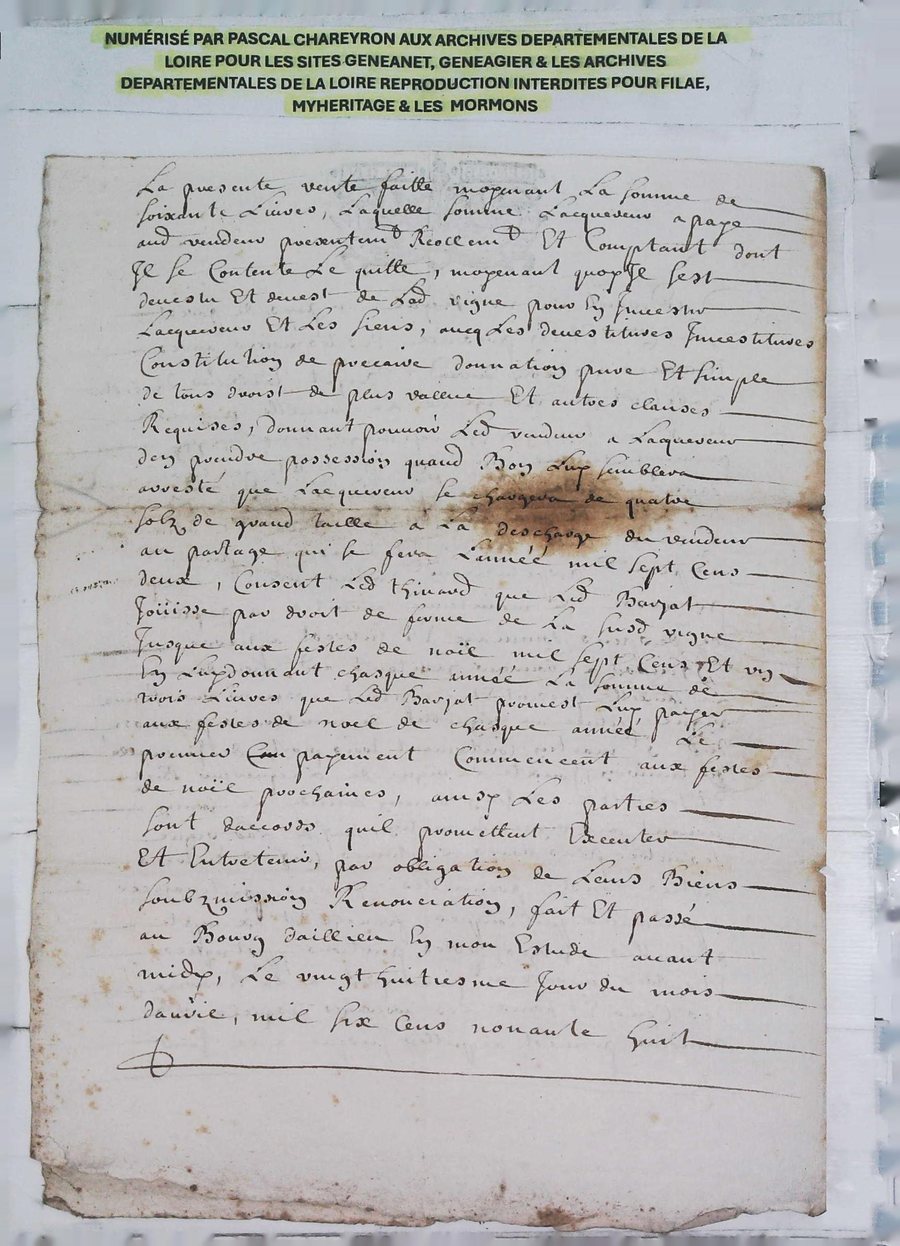 NUMÉRISÉ PAR PASCAL CHAREYRON AUX ARCHIVES DEPARTEMENTALES DE LA
LOIRE POUR LES SITES GENEANET, GENEAGIER & LES ARCHIVES
DEPARTEMENTALES DE LA LOIRE REPRODUCTION INTERDITES POUR FILAE,
MYHERITAGE & LES MORMONS
La presente vente faitte moyenant La somme de
soixante Liures, Laquelle somme Lacquereur a paye
aud vendeur presentemt Reellemt Et Comptant dont
Il se Contente Le quitte, moyenant quoy Il sest
deuestu Et deuest de Lad vigne pour En Inuestir
Lacquereur Et Les siens, aucq Les deuestitures Inuestitures
Constitution de precaire donnation pure Et simple
de tous droist de plus vallue Et autres clauses
Requises, donnant pouuoir Led vendeur a Lacquereur
den prendre possession quand Bon Luy semblera
arresté que Lacquereur se chargera de quatre
solz de grand taille a La descharge du vendeur
au partage qui se fera Lannéé mil sept Cens
deux, Consent Led thinard que Led Barjat
Joüisse par droit de ferme de La susd vigne
Jusque aux festes de noël mil sept Cens Et vn
En Luy donnant chasque annéé La somme de
trois Liures que Led Barjat promest Luy payer
aux festes de noel de chasque annéé Le
premier payement Commencent aux festes
de noïel prochaines, ainsy Les parties
sont daccords quil promettent Executer
Et Entretenir, par obligation de Leurs Biens
soubzmission Renonciation, fait Et passé
au Bourg daillieu En mon Estude auant
midy, Le vingt huitiesme Jour du mois
dauril, mil six Cens nonante huit